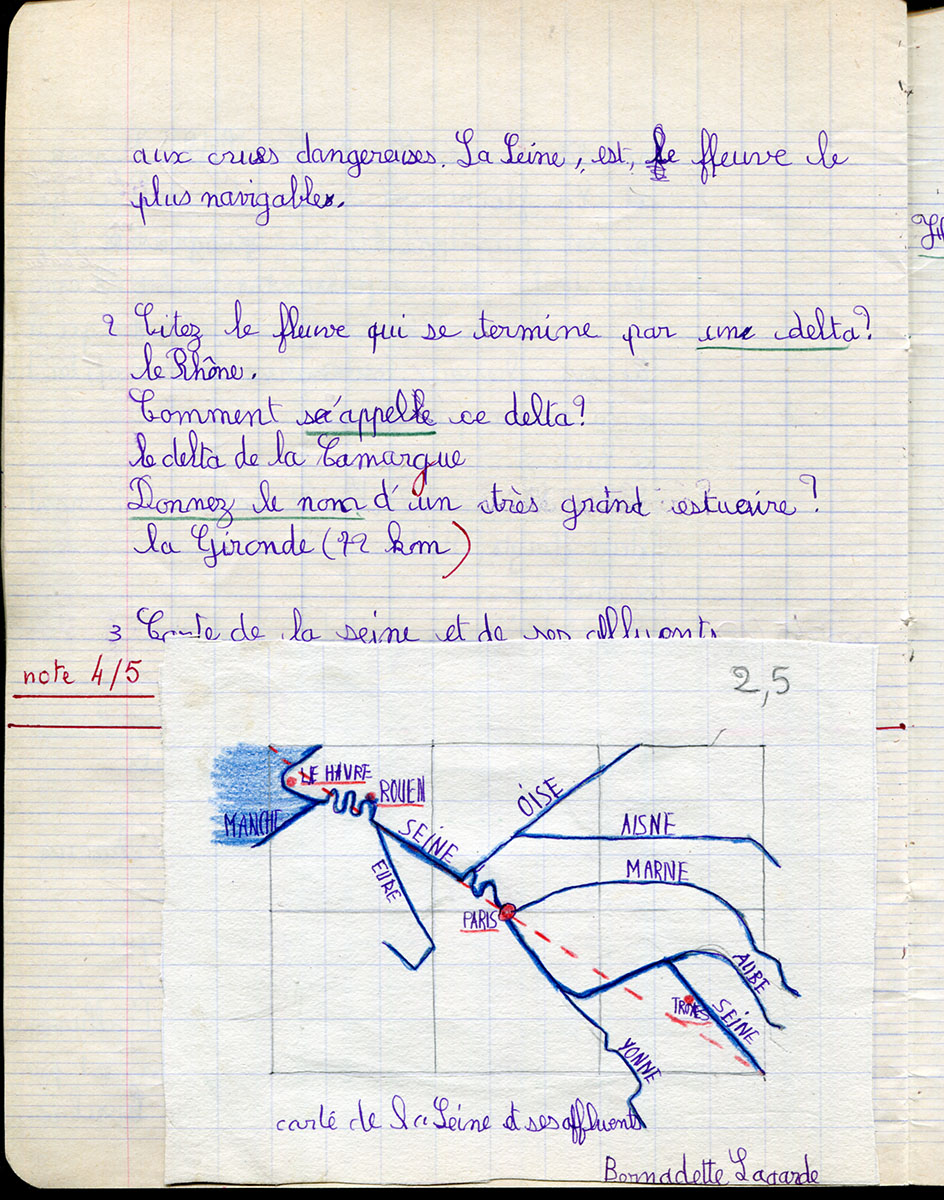 aux crues dangereuses. La Seine, est, le ffleuve le
plus navigable.
2 Citez le fleuve qui se termine par une delta?
le Rhône.
Comment s'appelle ce delta?
le delta de la Camargue
Donnez le nom d'un très grand estuaire?
la Gironde (72 km)
3 Carte de la seine et de ses affluents
note 4/5
2,5
LE HAVRE
ROUEN
MANCHE
SEINE
OISE
AISNE
EURE
MARNE
PARIS
AUBE
TROYES
SEINE
YONNE
carte de la Seine et ses affluents
Bernadette Lagarde